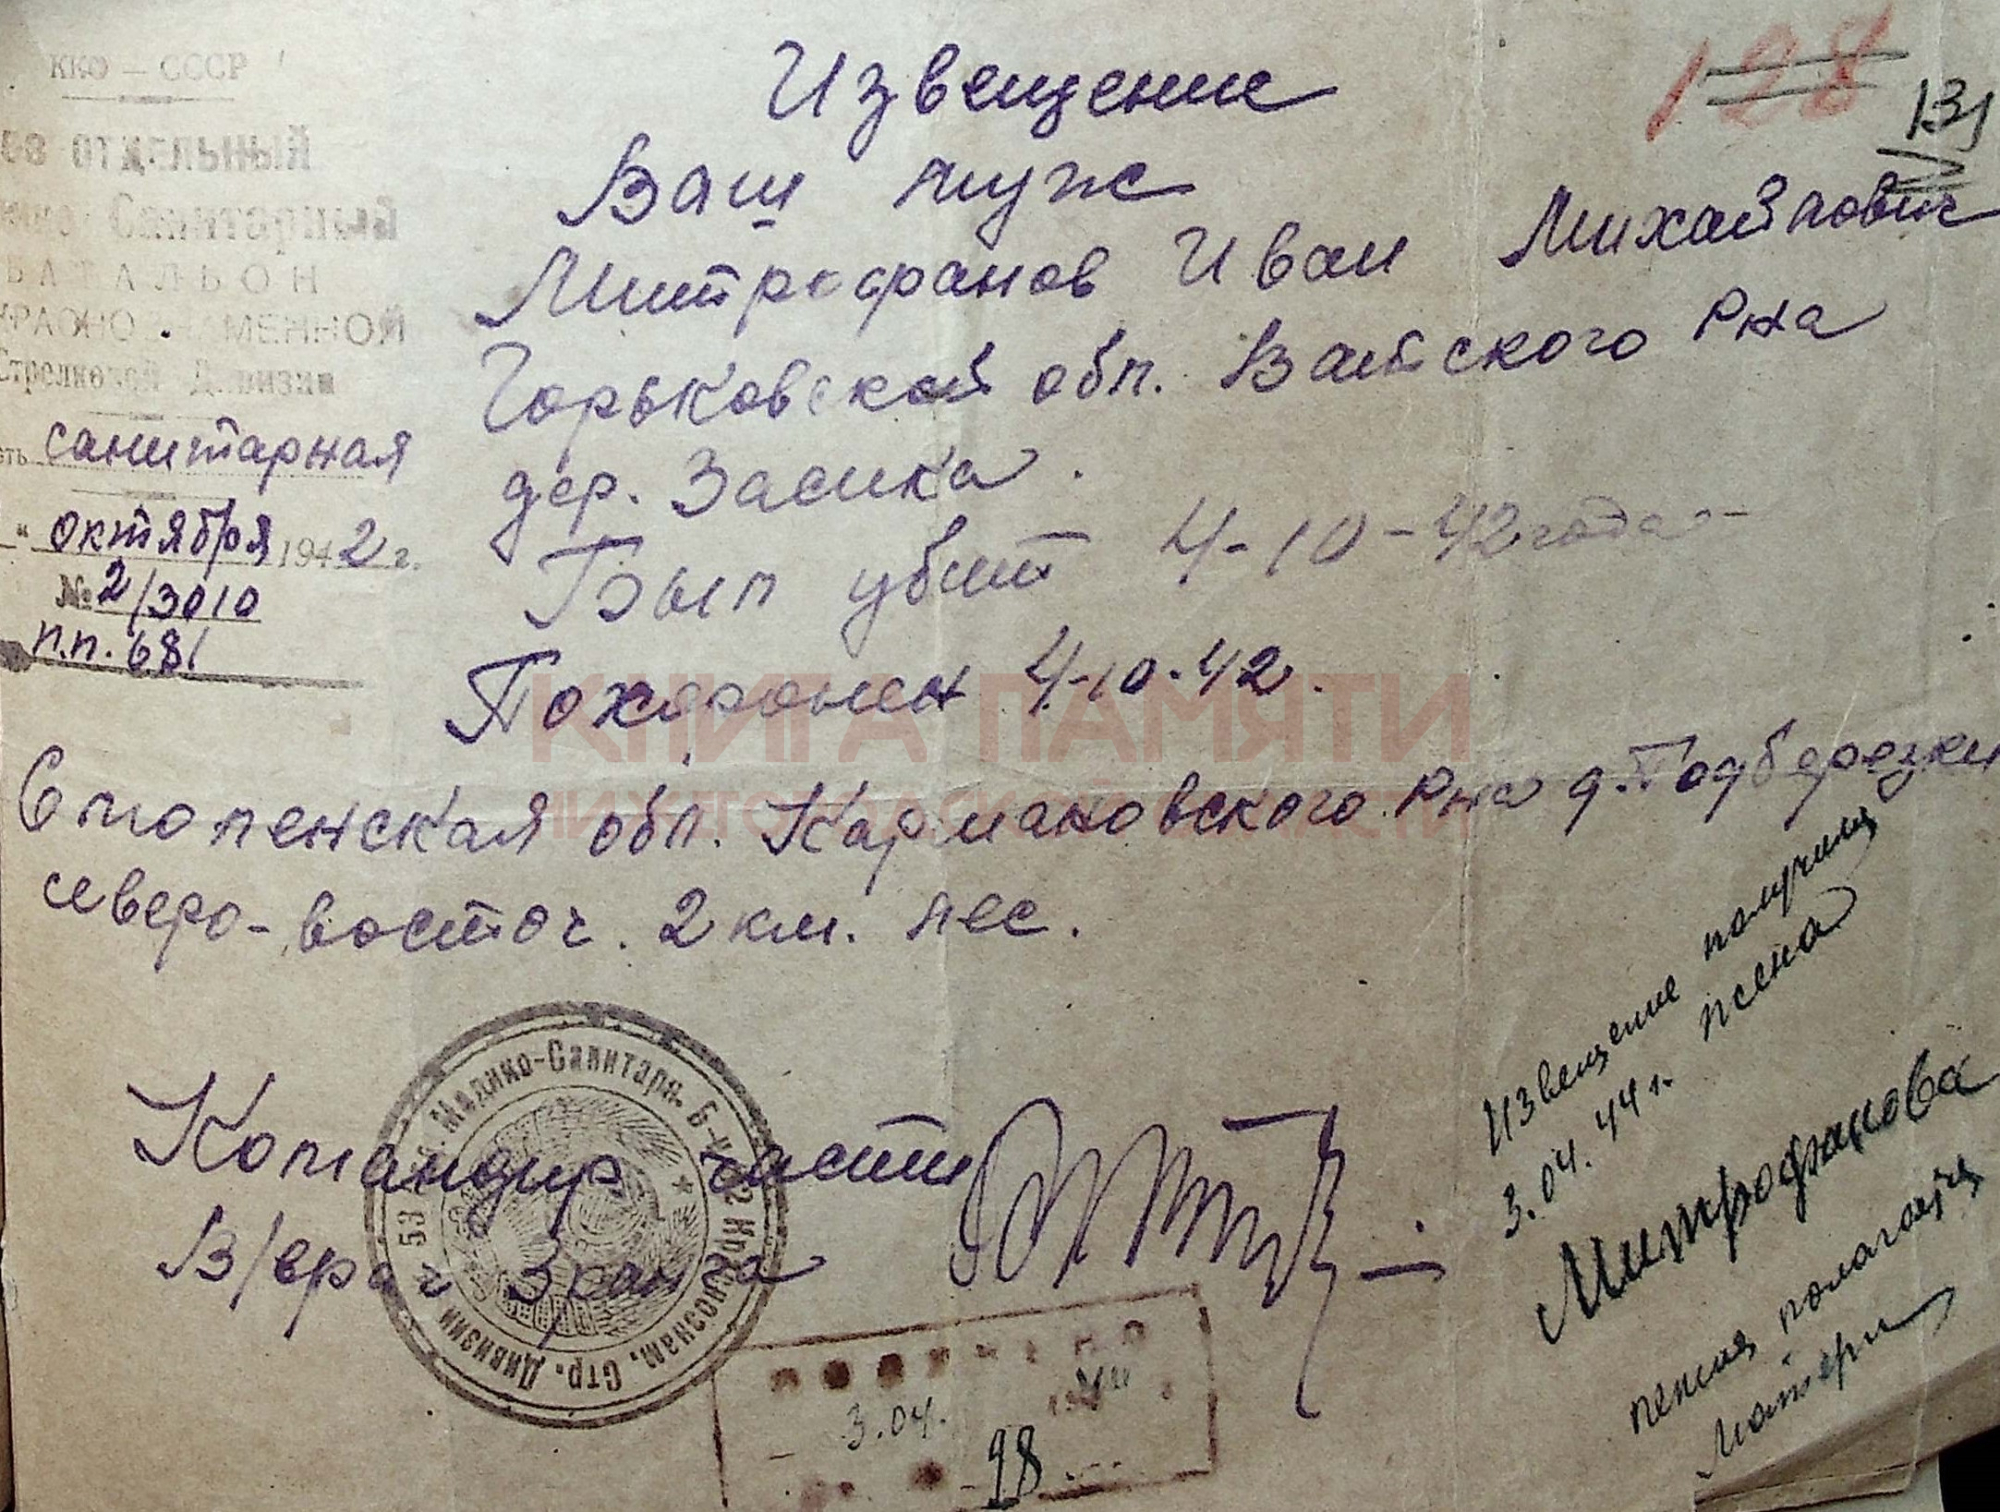 ККО — СССР
ОТДЕЛЬНЫЙ
Санитарный
БАТАЛЬОН
КРАСНОЗНАМЕННОЙ
Стрелковой Дивизии
санитарная
" октября 1942 г.
№ 2/3010
п.п. 681
128
131
Извещение
Ваш муж
Митрофанов Иван Михайлович
Горьковской обл. Вачского Р-на
дер. Засика.
Был убит 4-10-42 года
Похоронен 4-10-42.
Смоленская обл. Кармановского Р-на д. Подберезки
северо-восточ. 2 км. лес.
КНИГА ПАМЯТИ
НИЖЕГОРОДСКОЙ ОБЛАСТИ
Командир части
В/врач 3 ранга
53 Медико-Санитарн. Б-н Краснознам. Стр. Дивизии
Извещение получила
3.04.44 г. жена
Митрофанова
пенсия
матери
3.04.
98